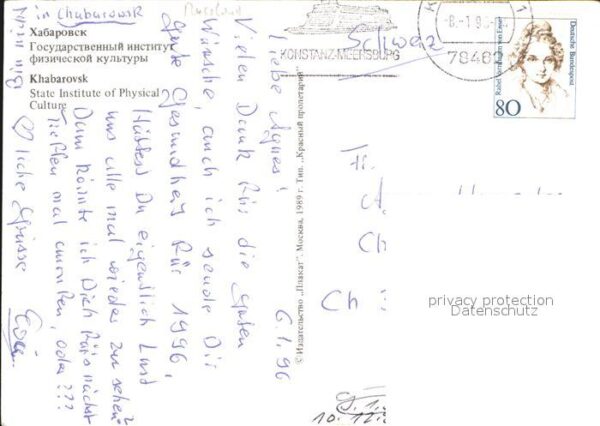 Хабаровск
Государственный институт
физической культуры
Khabarovsk
State Institute of Physical
Culture
© Издательство „Плакат". Москва, 1989 г. Тип. „Красный пролетарий"
Bin nie in Chabarowsk
Russland
6.1.96
Liebe Agnes!
Vielen Dank für die guten
Wünsche, auch ich sende Dir
gute Gesundheit für 1996,
Hättest Du eigentlich Lust
uns alle mal wieder zu sehen?
Dann könnte ich Dich fürs nächste
Treffen mal anrufen, oder???
liche Grüsse
KONSTANZ-MEERSBURG
78462
Schweiz
Deutsche Bundespost
Rahel Varnhagen von Ense
80
Fr.
A
Ch
Ch
privacy protection
Datenschutz
9.1.
10.12.